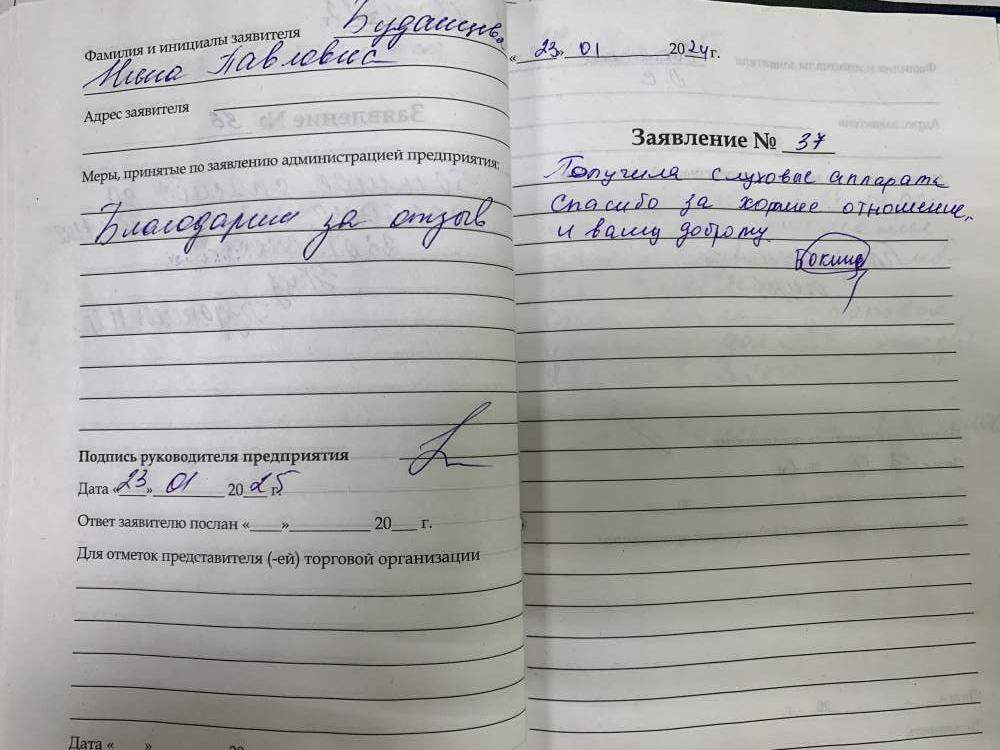 Фамилия и инициалы заявителя Будашцева
Нина Павловна
Адрес заявителя
Меры, принятые по заявлению администрацией предприятия:
Благодарим за отзыв
Подпись руководителя предприятия
Дата «23» 01 2025 г.
Ответ заявителю послан «____»__________ 20___ г.
Для отметок представителя (-ей) торговой организации
Дата «____»
«23» 01 2024 г.
Заявление № 37
Получила слуховые аппараты
Спасибо за хорошее отношение,
и вашу доброту.